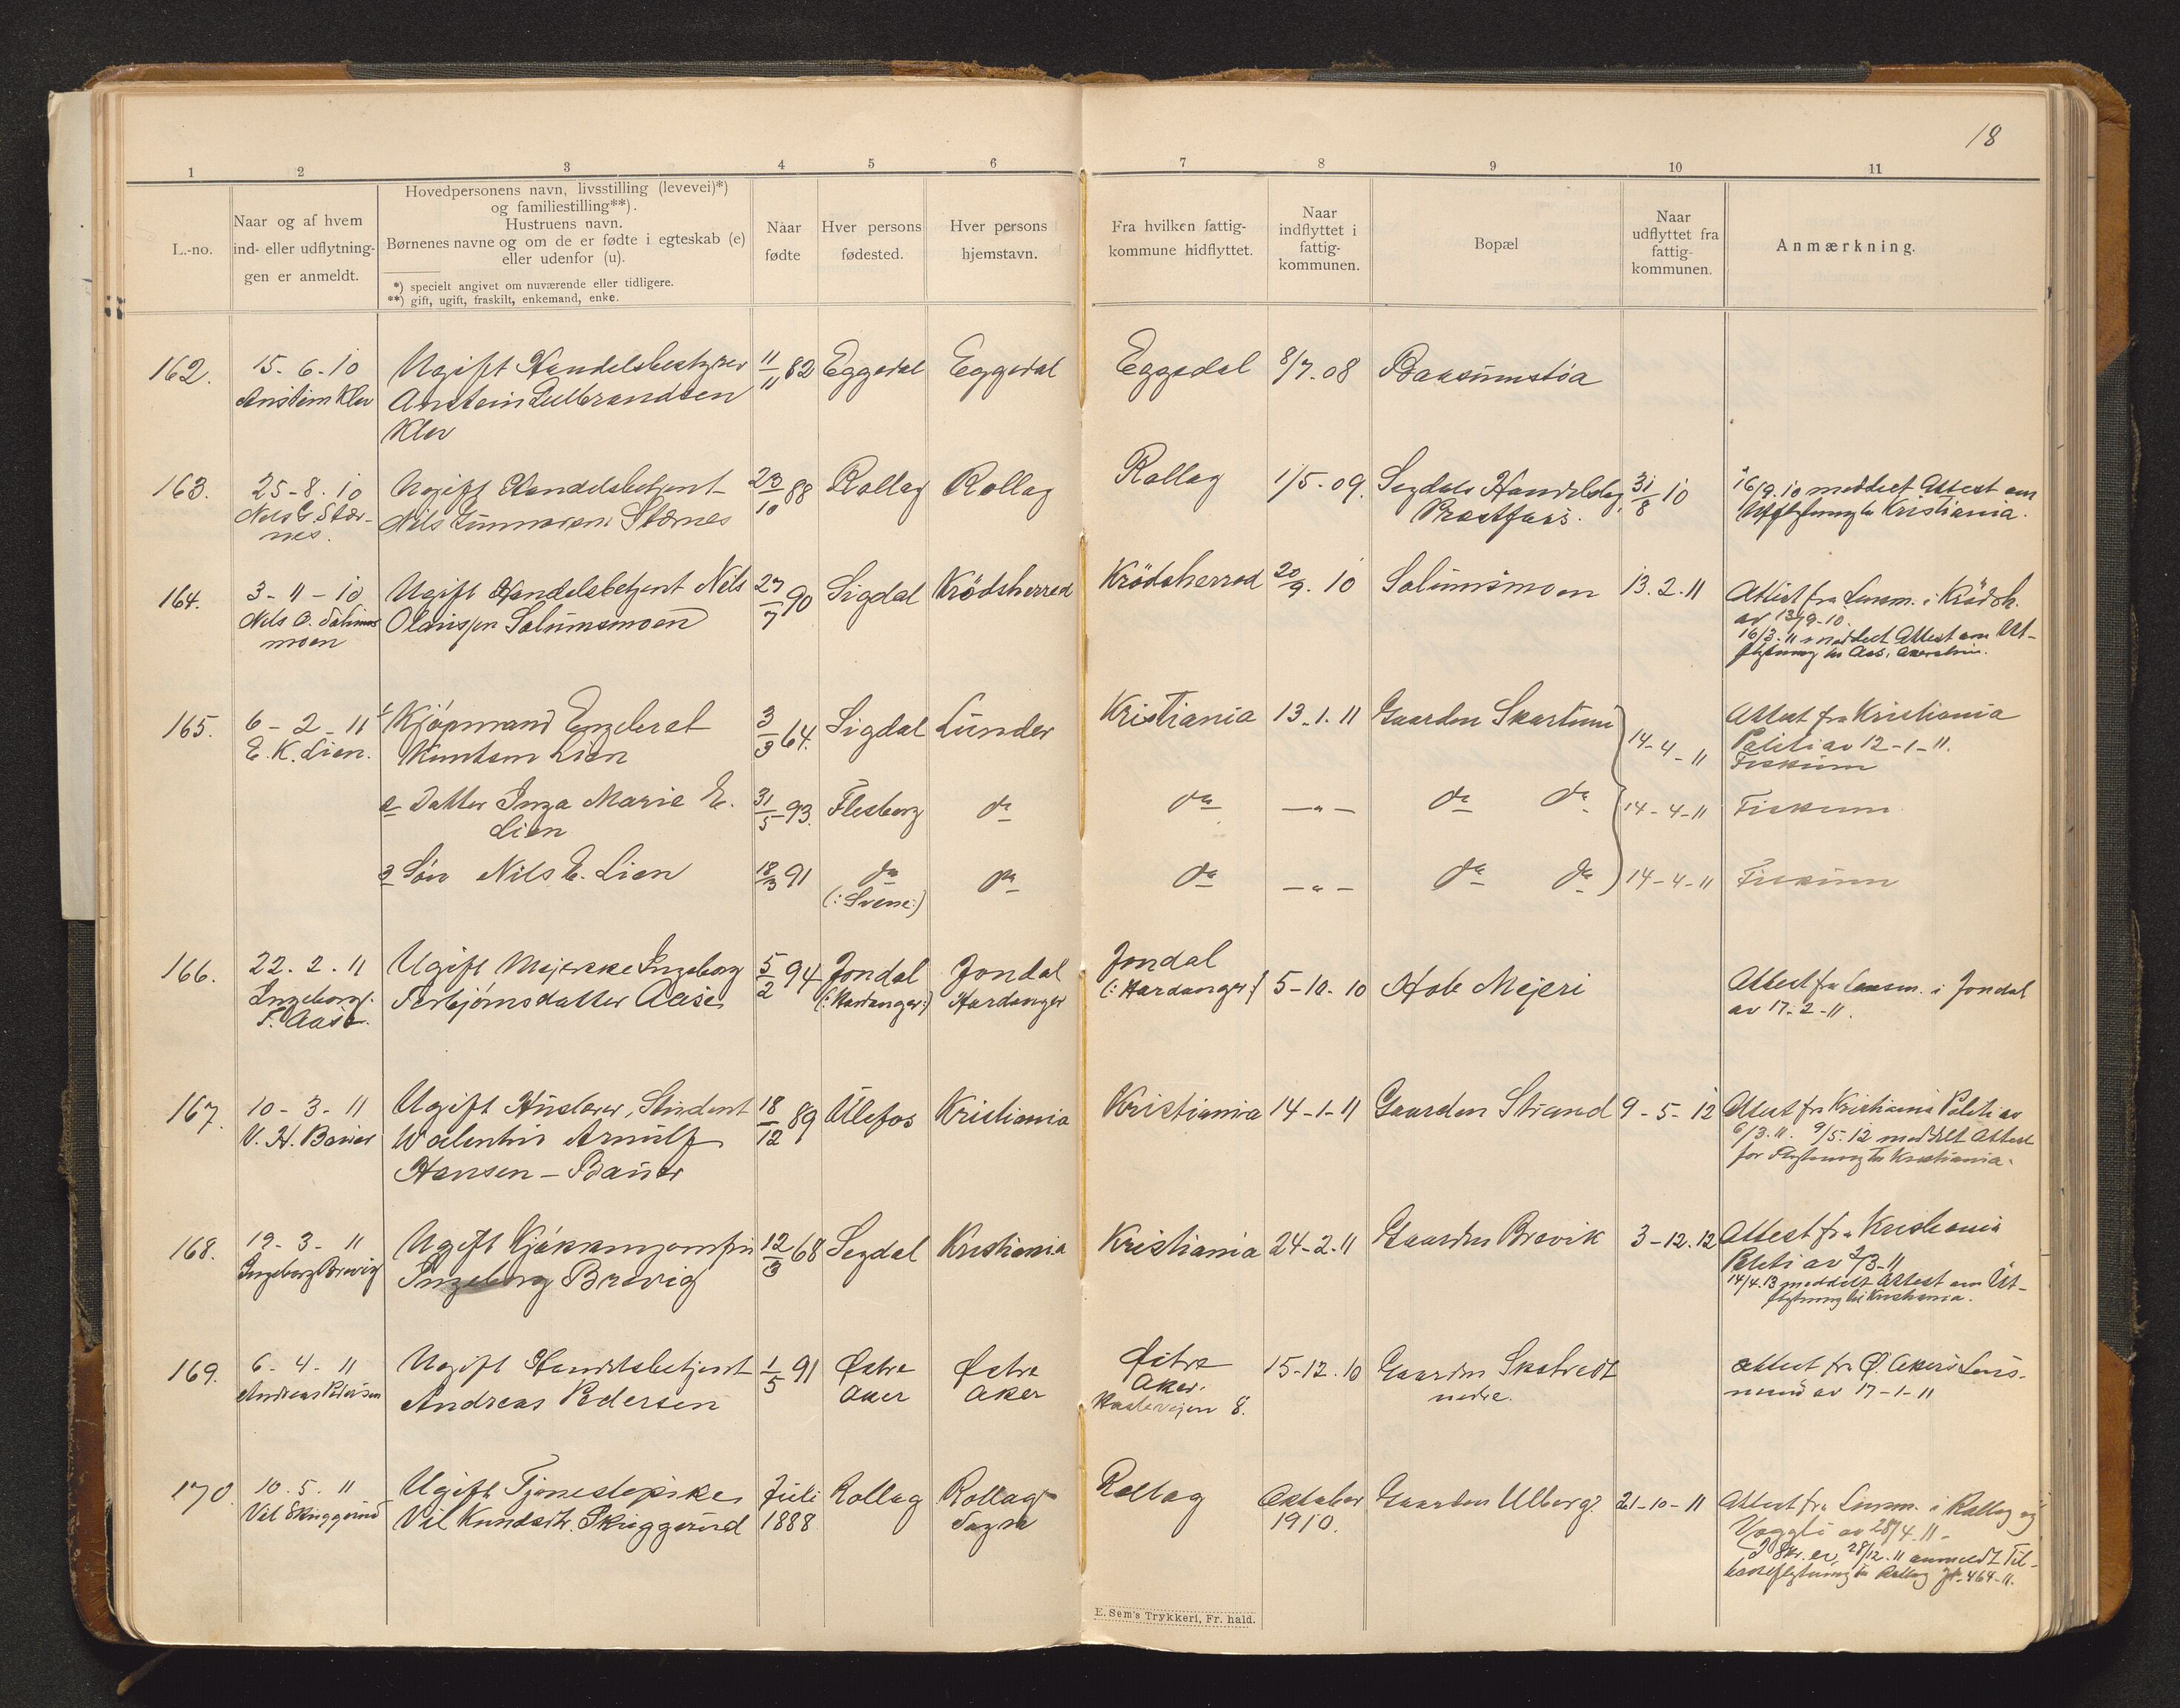 18
1 2 3 4 5 6 7 8 9 10 11
L.-no.
Naar og af hvem
ind- eller udflytnin-
gen er anmeldt.
Hovedpersonens navn, livsstilling (levevei)*)
og familiestilling**).
Hustruens navn.
Børnenes navne og om de er fødte i egteskab (e)
eller udenfor (u).
*) specielt angivet om nuværende eller tidligere.
**) gift, ugift, fraskilt, enkemand, enke.
Naar
fødte
Hver persons
fødested.
Hver persons
hjemstavn.
Fra hvilken fattig-
kommune hidflyttet.
Naar
indflyttet i
fattig-
kommunen.
Bopæl
Naar
udflyttet fra
fattig-
kommunen.
Anmærkning.
162. 15-6-10 Ugift Handelsbestyrer 11/11 82 Eggedal Eggedal Eggedal 8/7.08
Anstein Klev Anstein Gulbrandsen
Klev
163. 25-8.10 Ugift Handelsbetjent 23/10 88 Rollag Rollag Rollag 1/5-09. Segdals Handelslag, 31/8 10 16/9.10 meddelt Attest om
Nils G. Stær- Nils Gunnarsen Stærnes Præstfoss. Utflytning til Kristiania.
nes.
164. 3-11-10 Ugift Handelsbetjent Nils 27/7 90 Sigdal Krödsherred Krödsherred 20/9.10 Solumsmoen 13.2.11 Attest fra Lensm. i Krödsh.
Nils O. Solums Olavsen Solumsmoen av 13/9-10.
moen 16/3.11 meddelt Attest om Ut-
flytning til Aas, Akershus.
165. 6-2-11 Kjøpmand Engebret 3/9 64. Sigdal Lunder Kristiania 13.1.11 Gaarden Skartum 14-4-11 Attest fra Kristiania
E. K. Lien. Knutsen Lien Politi av 12-1-11.
Fiskum
e Datter Inga Marie E. 31/5 93. Flesberg do do -"- do do 14-4-11 Fiskum
Lien
e Søn Nils E. Lien 18/3 91 do do do -"- do do 14-4-11 Fiskum
(:Svene:)
166. 22.2.11 Ugift Mejerske Ingeborg 5/2 94 Jondal Jondal Jondal 5-10-10 Hole Mejeri Attest fra Lensm. i Jondal
Ingeborg Terbjørnsdatter Aase (:Hardanger:) Hardanger (:Hardanger:) av 17-2-11.
T. Aase.
167. 10-3-11 Ugift Huslærer, Student 18/12 89 Ulefos Kristiania Kristiania 14-1-11 Gaarden Strand 9-5-12 Attest fra Kristiania Politi av
V. H. Bauer Walentin Arnulf 6/3.11. 9/5.12 meddelt Attest
Hansen-Bauer for Flytning til Kristiania.
168. 19-3-11 Ugift Kjökkenjomfru 12/3 68 Segdal Kristiania Kristiania 24-2-11 Gaarden Brevik 3-12.12 Attest fra Kristiania
Ingeborg Brevig Ingeborg Brevig Politi av 2/3-11
14/4.13 meddelt Attest om Ut-
flytning til Kristiania.
169. 6-4-11 Ugift Handelsbetjent 1/5 91 Østre Østre Østre 15-12.10 Gaarden Skatvedt Attest fra Ø. Akers Lens-
Andreas Pedersen Andreas Pedersen Aker Aker Aker. nedre. mand av 17-1-11
8.
170. 10.5.11 Ugift Tjenestepike Juli Rollag Rollag Rollag Oktober Gaarden Ulberg. 21-10-11 Attest fra Lensm. i Rollag og
Vel Skuggerud Vel Knudsdtr. Skuggerud 1888 Sogne 1910. Veggli av 28/4.11-
28/12.11 anmeldt Til-
bakeflytning til Rollag 464-11.
E. Sem's Trykkeri, Fr. hald.